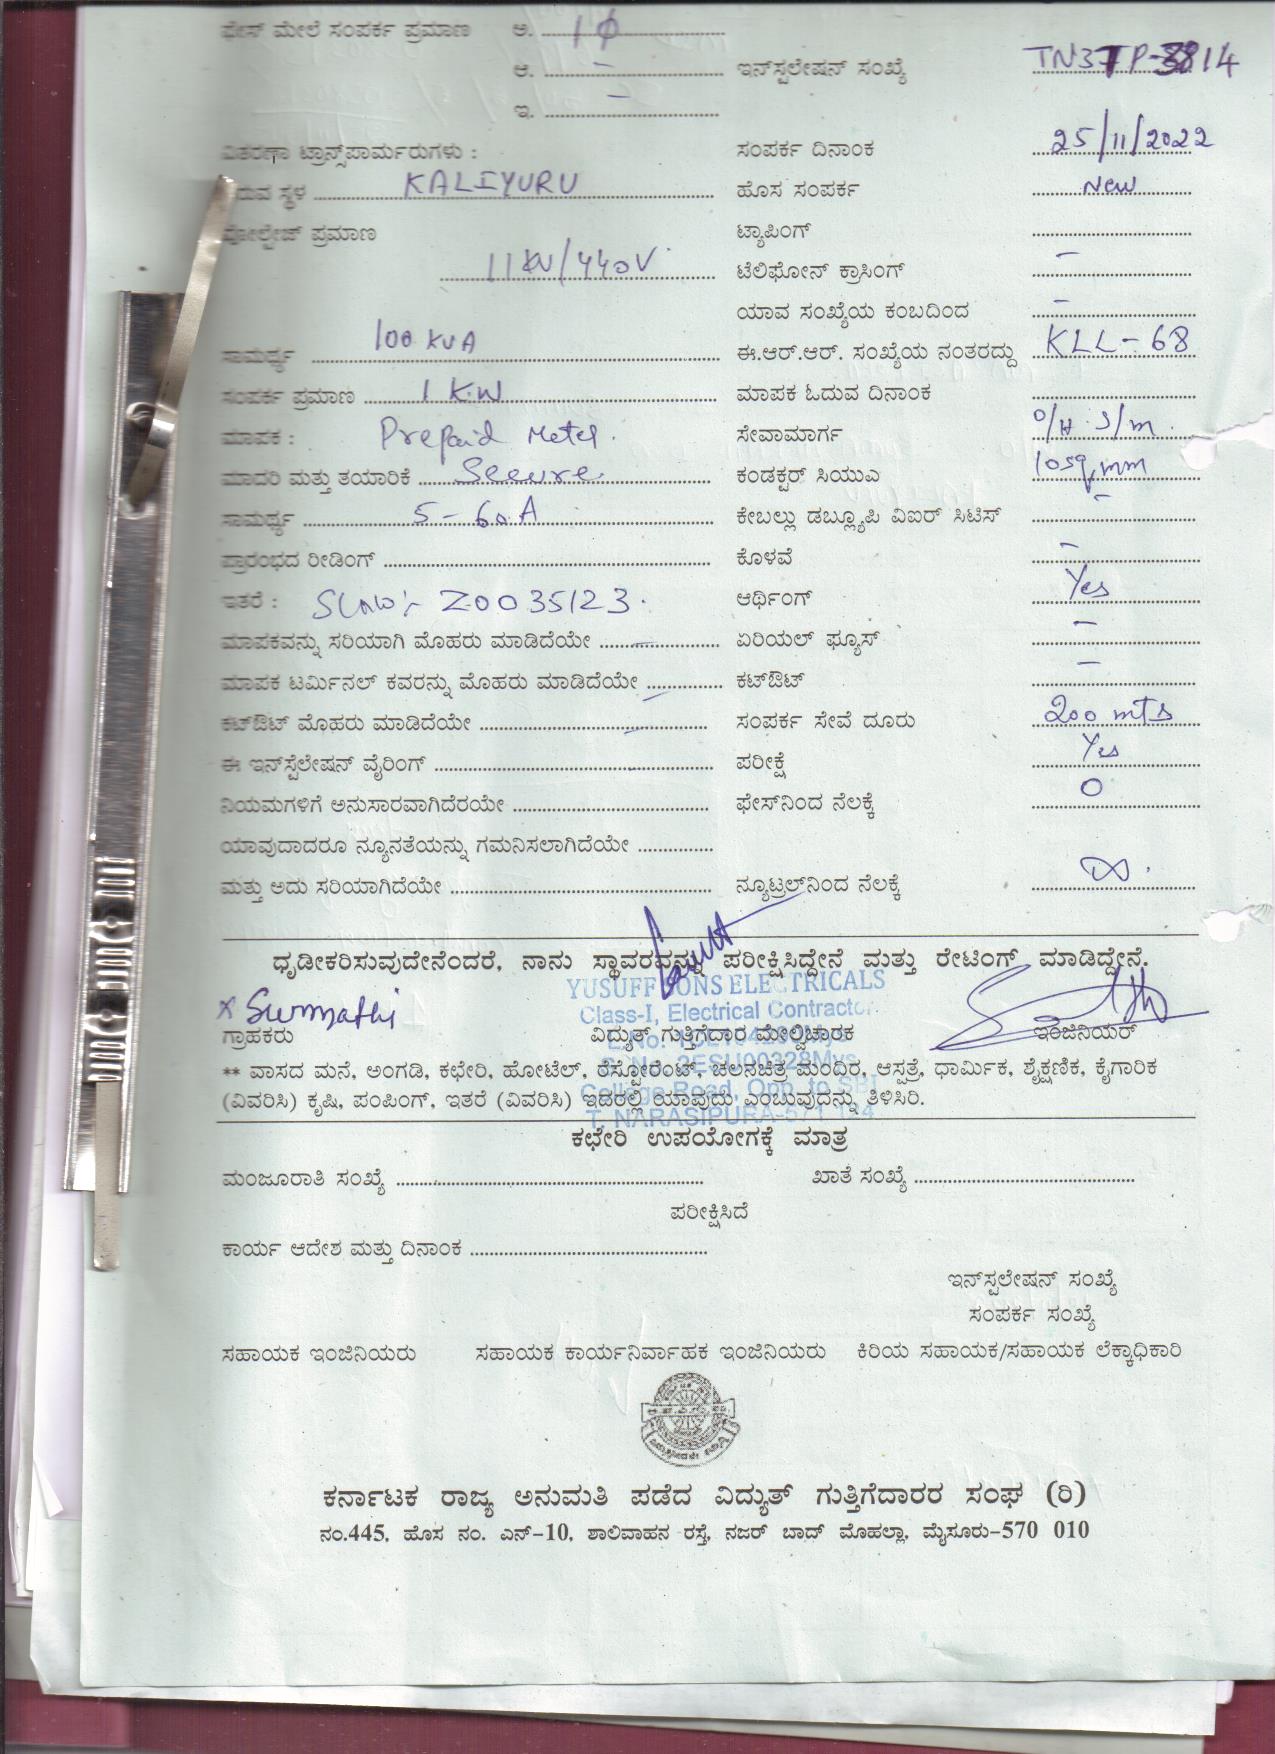 ಫೇಸ್ ಮೇಲೆ ಸಂಪರ್ಕ ಪ್ರಮಾಣ ಅ. 1ϕ
ಆ. – ಇನ್‌ಸ್ಪಲೇಷನ್ ಸಂಖ್ಯೆ TN37TP-38814
ಇ. –
ವಿತರಣಾ ಟ್ರಾನ್ಸ್‌ಪಾರ್ಮರುಗಳು : ಸಂಪರ್ಕ ದಿನಾಂಕ 25/11/2022
ಇರುವ ಸ್ಥಳ KALIYURU ಹೊಸ ಸಂಪರ್ಕ New
ವೋಲ್ಟೇಜ್ ಪ್ರಮಾಣ ಟ್ಯಾಪಿಂಗ್
11KV/440V ಟೆಲಿಫೋನ್ ಕ್ರಾಸಿಂಗ್ –
ಯಾವ ಸಂಖ್ಯೆಯ ಕಂಬದಿಂದ –
ಸಾಮರ್ಥ್ಯ 100 KVA ಈ.ಆರ್.ಆರ್. ಸಂಖ್ಯೆಯ ನಂತರದ್ದು KLL-68
ಸಂಪರ್ಕ ಪ್ರಮಾಣ 1 K.W ಮಾಪಕ ಓದುವ ದಿನಾಂಕ
ಮಾಪಕ : Prepaid Meter. ಸೇವಾಮಾರ್ಗ O/H S/m.
ಮಾದರಿ ಮತ್ತು ತಯಾರಿಕೆ Secure ಕಂಡಕ್ಟರ್ ಸಿಯುಎ 10sqmm
ಸಾಮರ್ಥ್ಯ 5-60A ಕೇಬಲ್ಲು ಡಬ್ಲ್ಯೂಪಿ ವಿಐಆರ್ ಸಿಟಿಸ್ –
ಪ್ರಾರಂಭದ ರೀಡಿಂಗ್ ಕೊಳವೆ –
ಇತರೆ : Slno:- Z0035123. ಆರ್ಥಿಂಗ್ Yes
ಮಾಪಕವನ್ನು ಸರಿಯಾಗಿ ಮೊಹರು ಮಾಡಿದೆಯೇ – ಏರಿಯಲ್ ಫ್ಯೂಸ್ –
ಮಾಪಕ ಟರ್ಮಿನಲ್ ಕವರನ್ನು ಮೊಹರು ಮಾಡಿದೆಯೇ – ಕಟ್‌ಔಟ್ –
ಕಟ್‌ಔಟ್ ಮೊಹರು ಮಾಡಿದೆಯೇ – ಸಂಪರ್ಕ ಸೇವೆ ದೂರು 200 mts
ಈ ಇನ್‌ಸ್ಟೆಲೇಷನ್ ವೈರಿಂಗ್ ಪರೀಕ್ಷೆ Yes
ನಿಯಮಗಳಿಗೆ ಅನುಸಾರವಾಗಿದೆರಯೇ ಫೇಸ್‌ನಿಂದ ನೆಲಕ್ಕೆ 0
ಯಾವುದಾದರೂ ನ್ಯೂನತೆಯನ್ನು ಗಮನಿಸಲಾಗಿದೆಯೇ
ಮತ್ತು ಅದು ಸರಿಯಾಗಿದೆಯೇ ನ್ಯೂಟ್ರಲ್‌ನಿಂದ ನೆಲಕ್ಕೆ ∞.
ಧೃಡೀಕರಿಸುವುದೇನೆಂದರೆ, ನಾನು ಸ್ಥಾವರವನ್ನು ಪರೀಕ್ಷಿಸಿದ್ದೇನೆ ಮತ್ತು ರೇಟಿಂಗ್ ಮಾಡಿದ್ದೇನೆ.
YUSUFF SONS ELECTRICALS
x Summathi Class-I, Electrical Contractor
ಗ್ರಾಹಕರು ವಿದ್ಯುತ್ ಗುತ್ತಿಗೆದಾರ ಮೇಲ್ವಿಚಾರಕ ಇಂಜಿನಿಯರ್
2ESU00328Mys
** ವಾಸದ ಮನೆ, ಅಂಗಡಿ, ಕಛೇರಿ, ಹೋಟೆಲ್, ರೆಸ್ಟೋರೆಂಟ್, ಚಲನಚಿತ್ರ ಮಂದಿರ, ಆಸ್ಪತ್ರೆ, ಧಾರ್ಮಿಕ, ಶೈಕ್ಷಣಿಕ, ಕೈಗಾರಿಕ
College Road, Opp. to SBI
(ವಿವರಿಸಿ) ಕೃಷಿ, ಪಂಪಿಂಗ್, ಇತರೆ (ವಿವರಿಸಿ) ಇದರಲ್ಲಿ ಯಾವುದು ಎಂಬುವುದನ್ನು ತಿಳಿಸಿರಿ.
T. NARASIPURA-571 124
ಕಛೇರಿ ಉಪಯೋಗಕ್ಕೆ ಮಾತ್ರ
ಮಂಜೂರಾತಿ ಸಂಖ್ಯೆ ಖಾತೆ ಸಂಖ್ಯೆ
ಪರೀಕ್ಷಿಸಿದೆ
ಕಾರ್ಯ ಆದೇಶ ಮತ್ತು ದಿನಾಂಕ
ಇನ್‌ಸ್ಪಲೇಷನ್ ಸಂಖ್ಯೆ
ಸಂಪರ್ಕ ಸಂಖ್ಯೆ
ಸಹಾಯಕ ಇಂಜಿನಿಯರು ಸಹಾಯಕ ಕಾರ್ಯನಿರ್ವಾಹಕ ಇಂಜಿನಿಯರು ಕಿರಿಯ ಸಹಾಯಕ/ಸಹಾಯಕ ಲೆಕ್ಕಾಧಿಕಾರಿ
ಕರ್ನಾಟಕ ರಾಜ್ಯ ಅನುಮತಿ ಪಡೆದ ವಿದ್ಯುತ್ ಗುತ್ತಿಗೆದಾರರ ಸಂಘ (ರಿ)
ನಂ.445, ಹೊಸ ನಂ. ಎನ್-10, ಶಾಲಿವಾಹನ ರಸ್ತೆ, ನಜರ್ ಬಾದ್ ಮೊಹಲ್ಲಾ, ಮೈಸೂರು-570 010